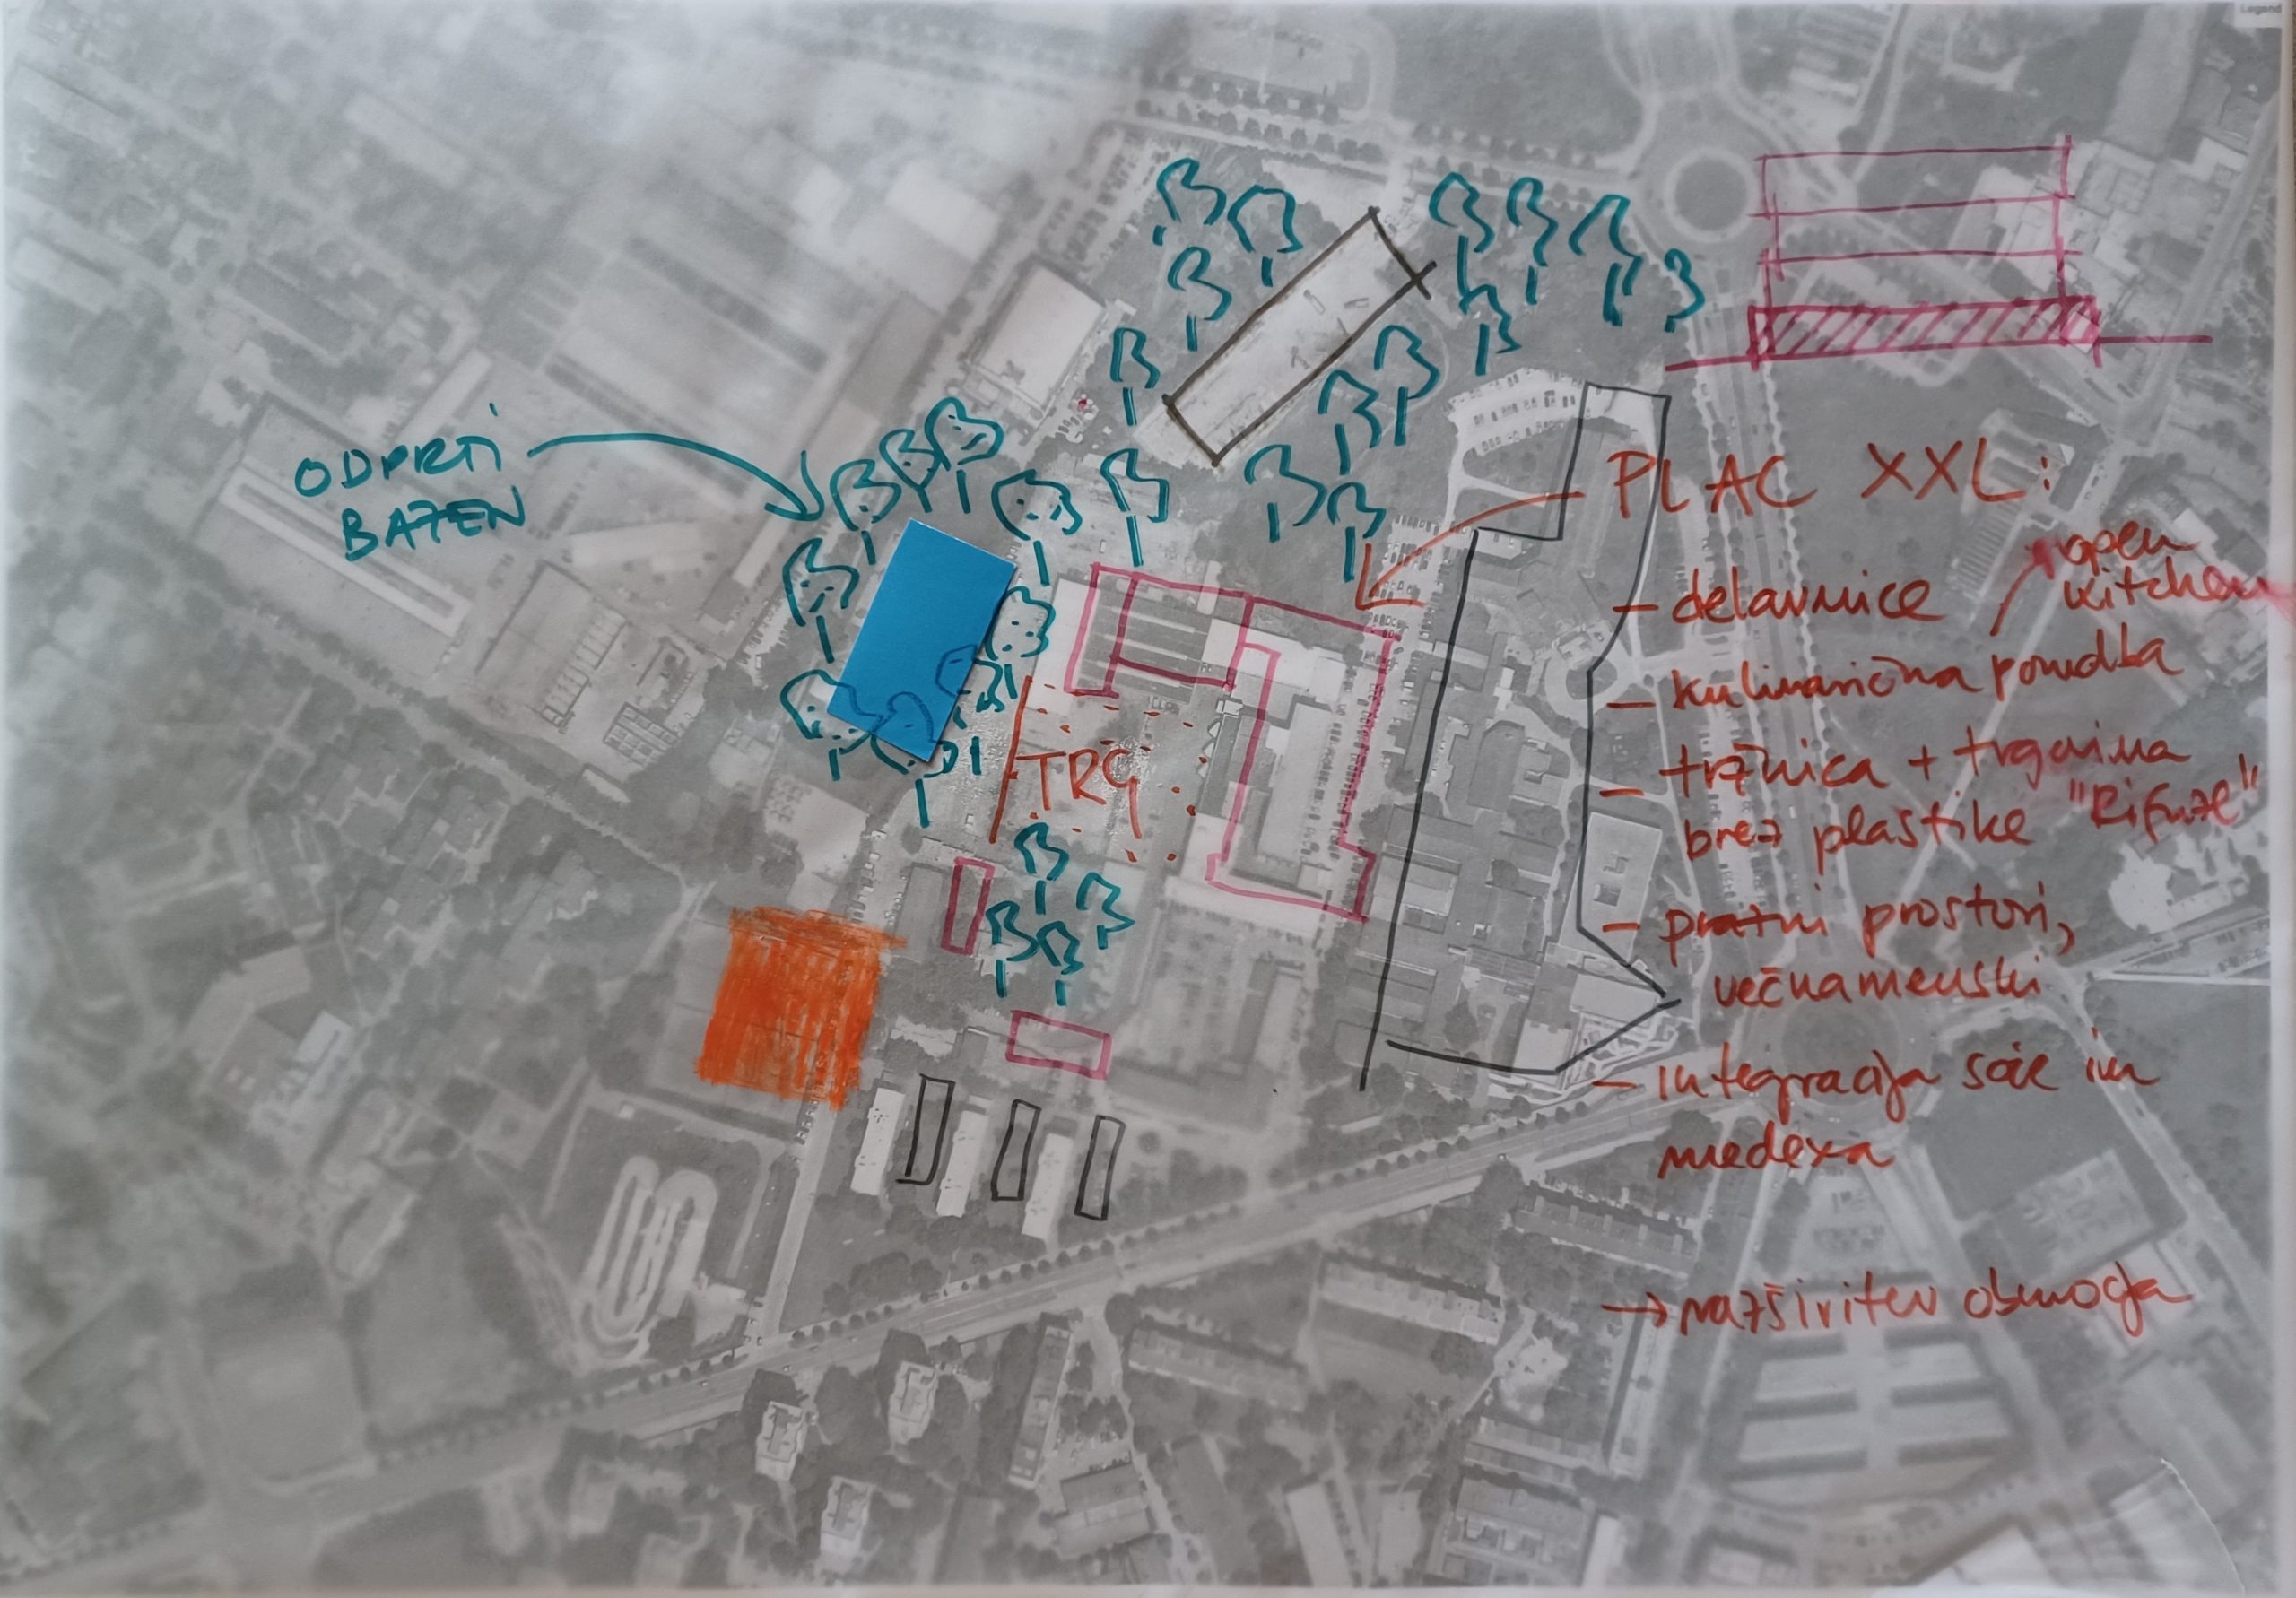 Legend
ODPRTI
BAZEN
PLAC XXL:
open
kitchen
- delavnice
- kulinarična ponudba
- tržnica + trgovina
brez plastike "Rifuzl"
- pratni prostori,
večnamenski
- integracija šole in
medexa
→ razširitev območja
TRG